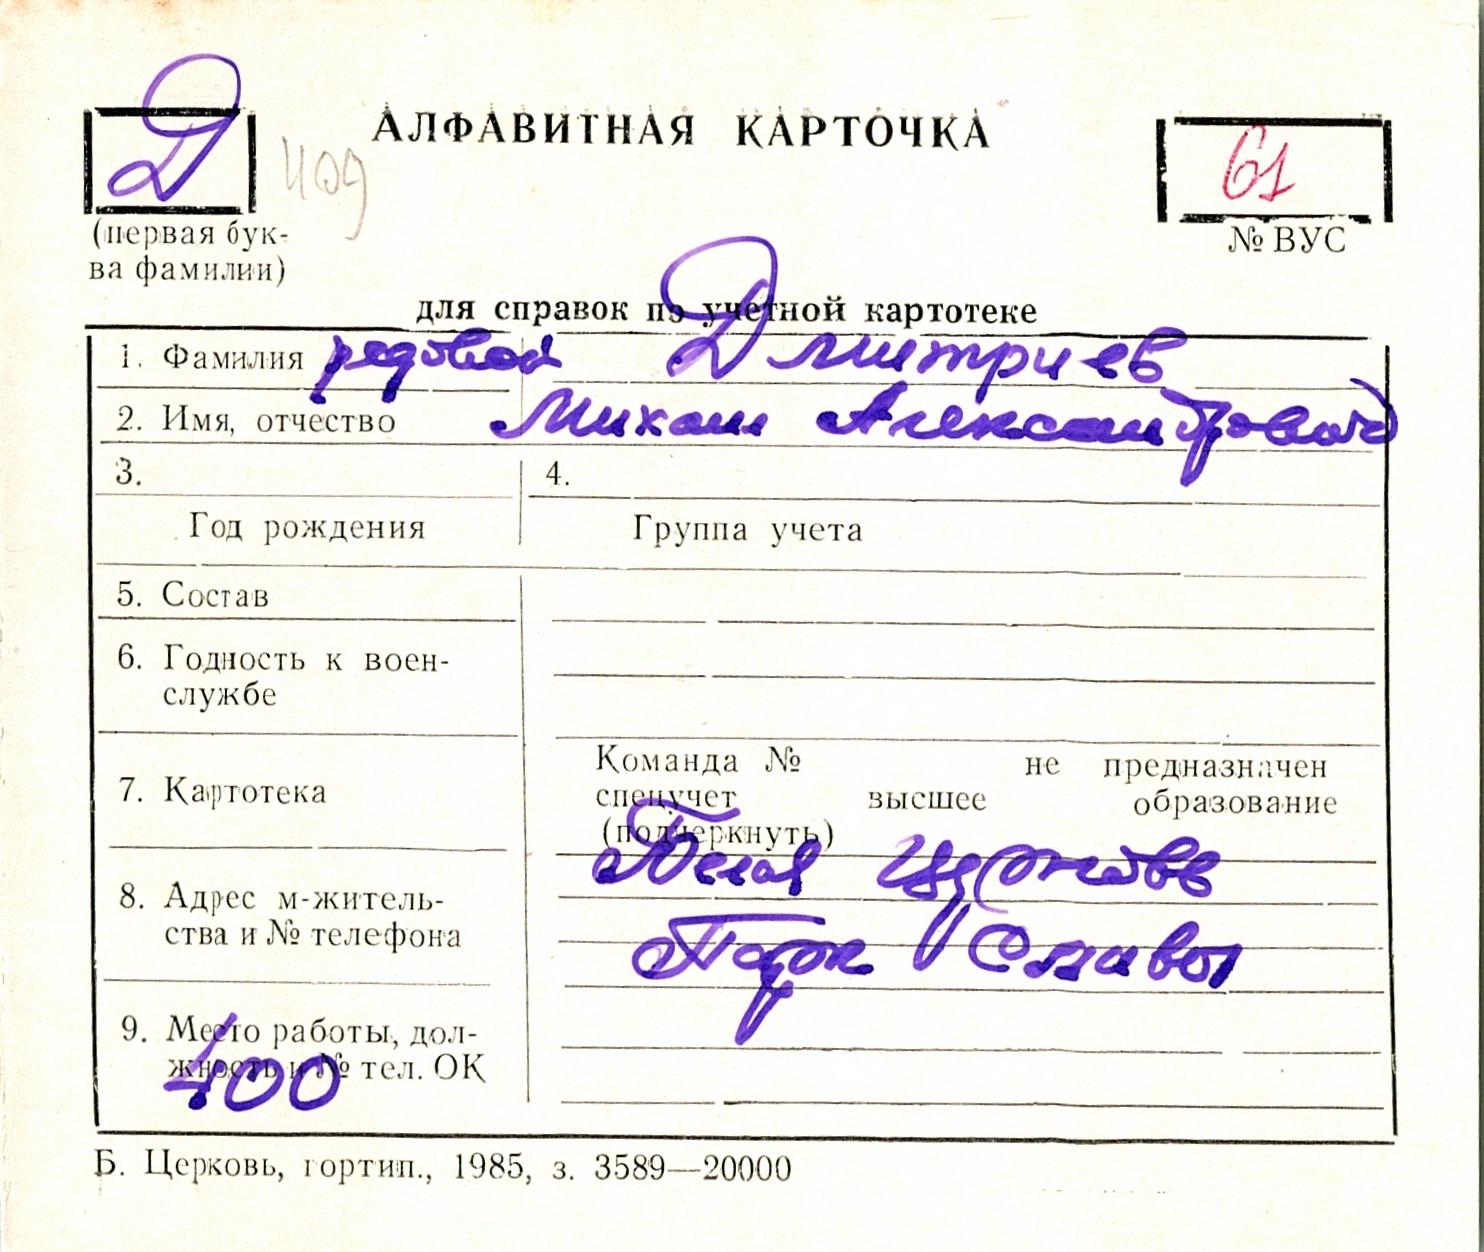 Д 409 АЛФАВИТНАЯ КАРТОЧКА 61
(первая бук-
ва фамилии)
№ ВУС
для справок по учетной картотеке
1. Фамилия рядовой Дмитриев
2. Имя, отчество Михаил Александрович
3. 4.
Год рождения Группа учета
5. Состав
6. Годность к воен-
службе
7. Картотека
Команда № не предназначен
спецучет высшее образование
(подчеркнуть)
8. Адрес м-житель-
ства и № телефона
Белая Церковь
Парк Славы
9. Место работы, дол-
жность и № тел. ОК
400
Б. Церковь, гортип., 1985, з. 3589—20000